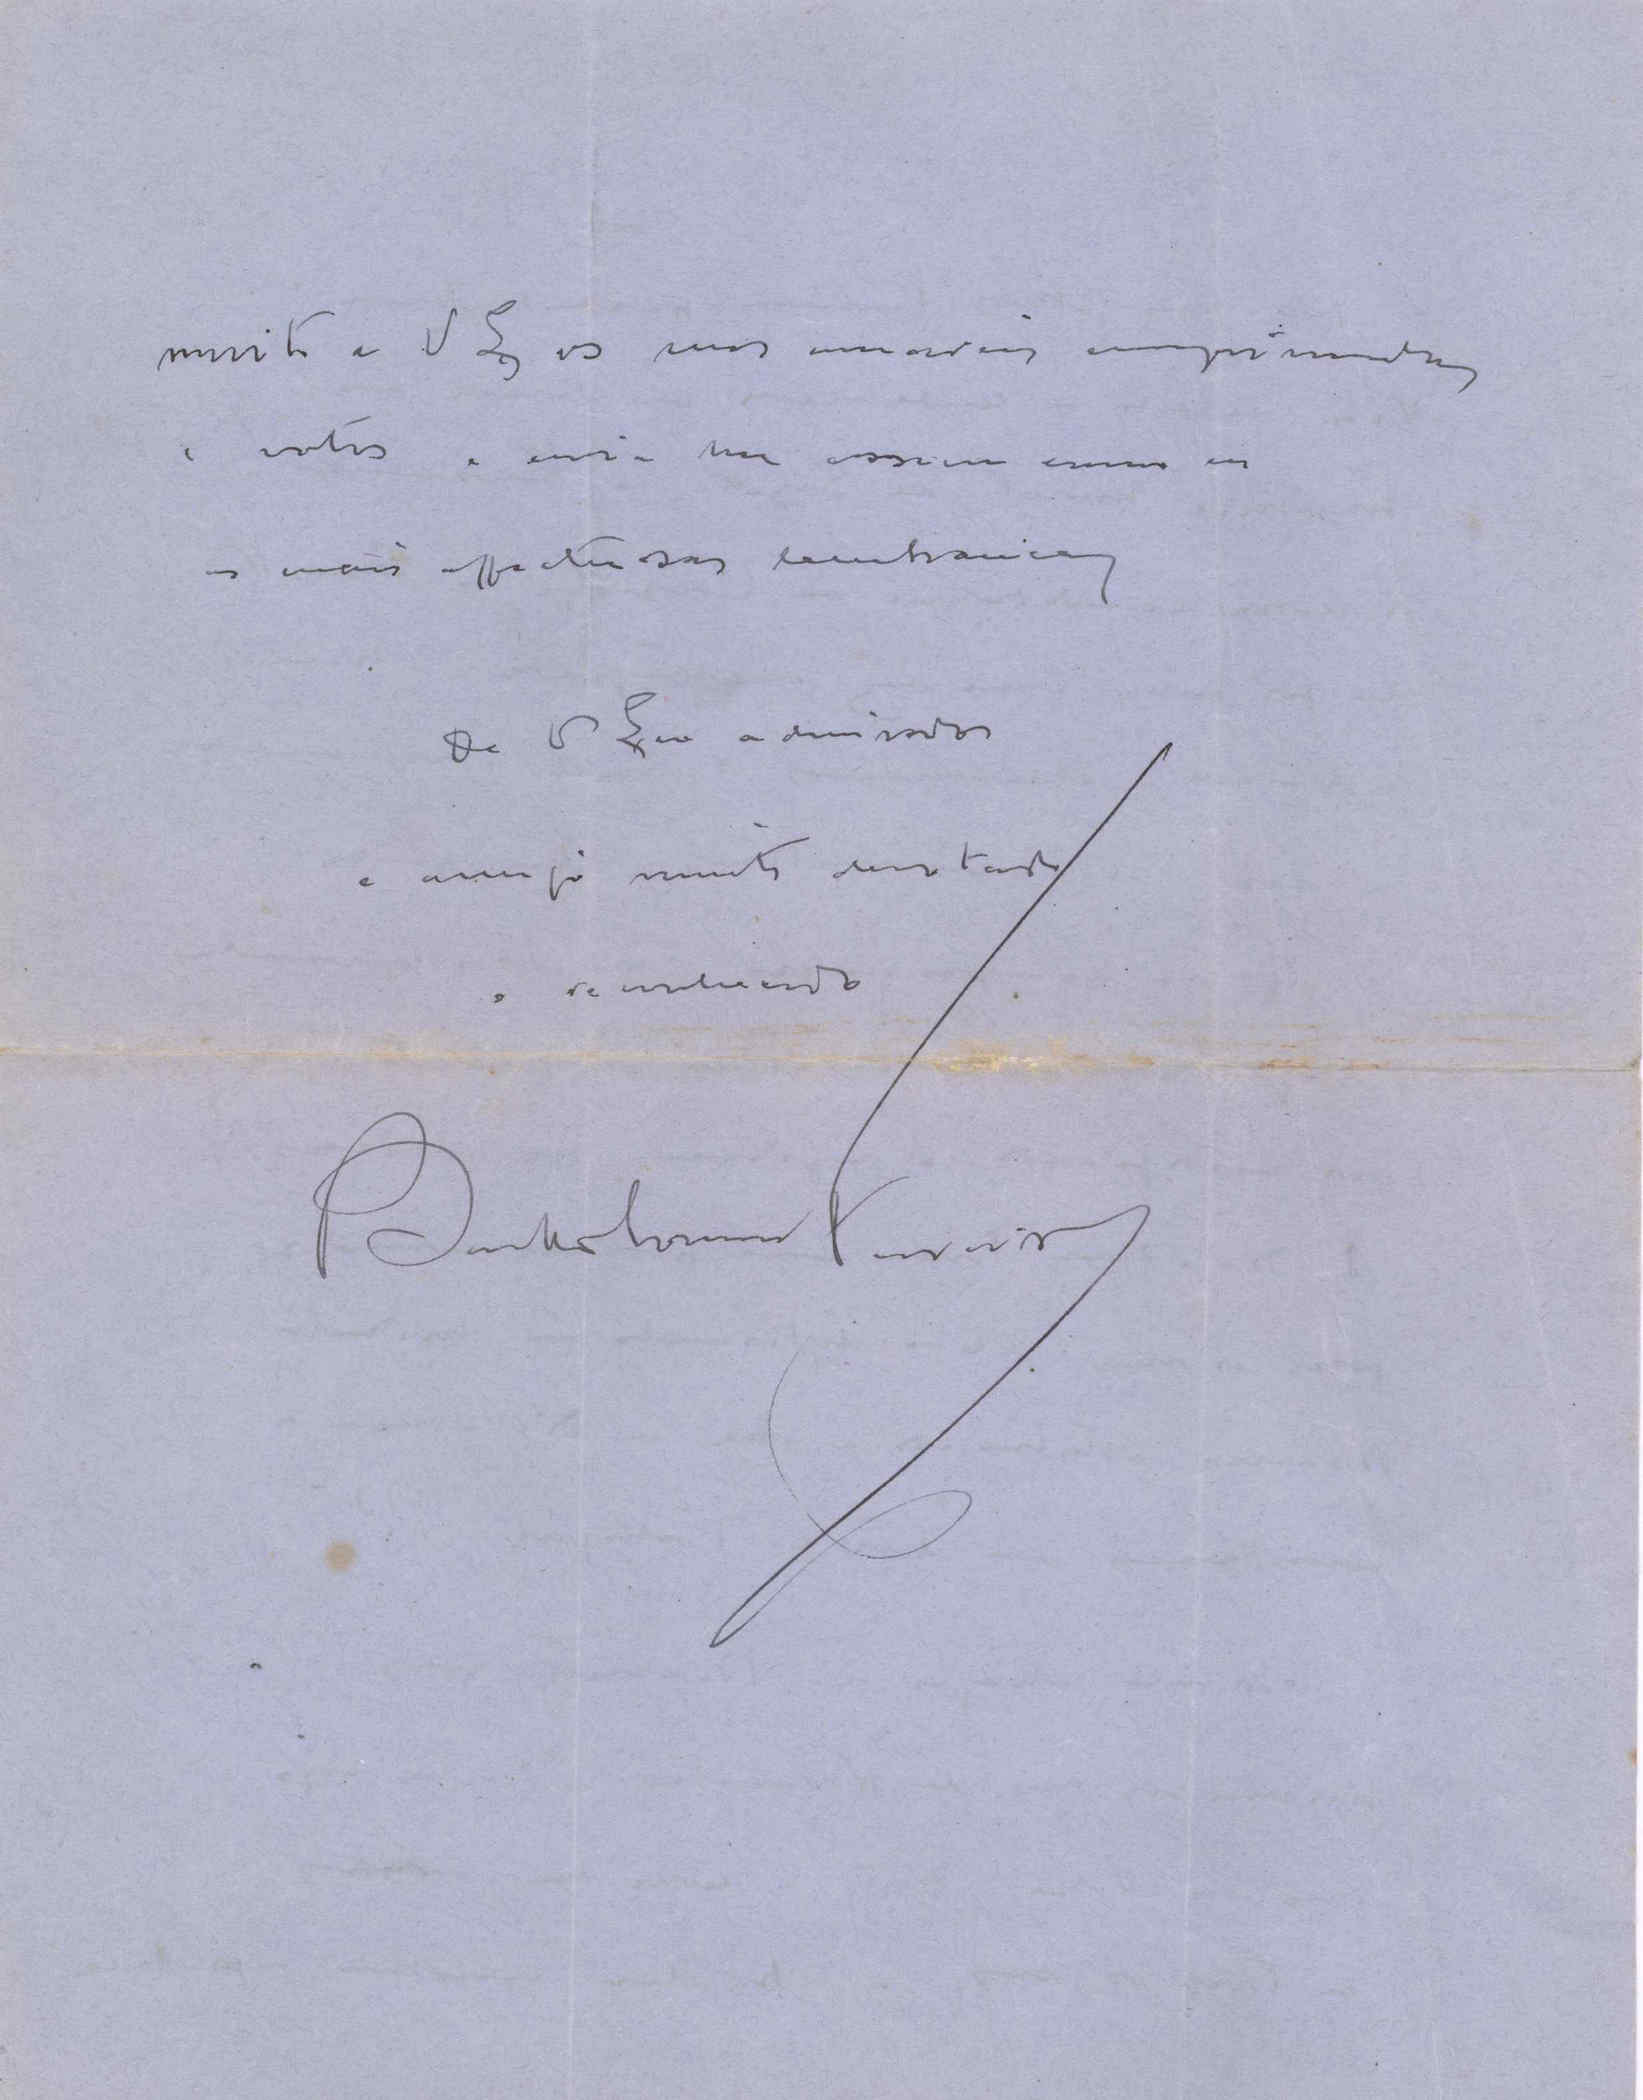 muito a V Ex os seus amaveis cumprimentos
e votos e envia lhe assim como eu
as mais affectuosas lembranças
De V Exa admirador
e amigo muito devotado
e reconhecido
Bartholomeu Ferreira